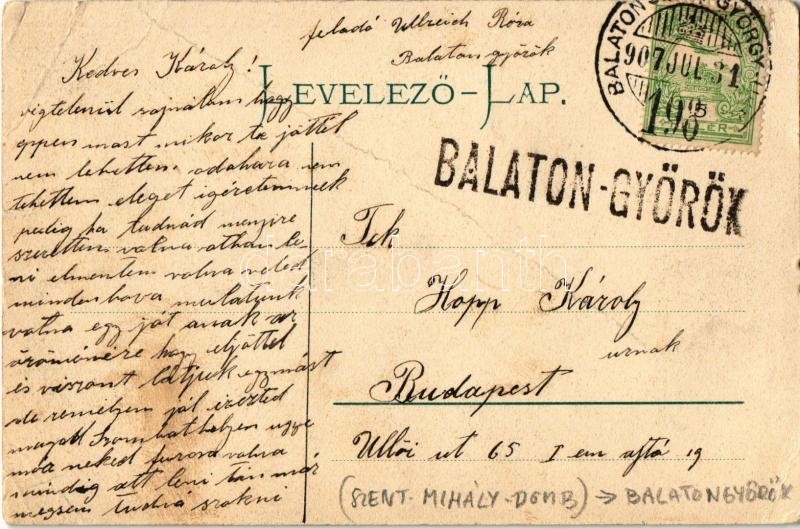 feladó Ullreich Róza
Balaton györök
LEVELEZŐ-LAP.
BALATON GYÖRGY
907 JUL 31
198
BALATON-GYÖRÖK
Kedves Károly!
végtelenül sajnálom hogy
éppen most mikor te jöttél
nem lehettem odahaza nem
tehettem eleget igéretemnek
pedig ha tudnád menyire
szerettem volna othon le
ni elmentem volna veled
mindenhova mulatunk
volna egy jót annak az
örömére hogy eljöttél
és viszont látjuk egymást
de remélyem jól érezted
magad Szombathelyen ugye
neked furcsa volna
mindig ott leni tán már
megsem tudná szokni
Tek
Hopp Károly
urnak
Budapest
Üllői ut 65 I em ajtó 19
(SZENT-MIHÁLY-DOMB) → BALATONGYÖRÖK
darabanth